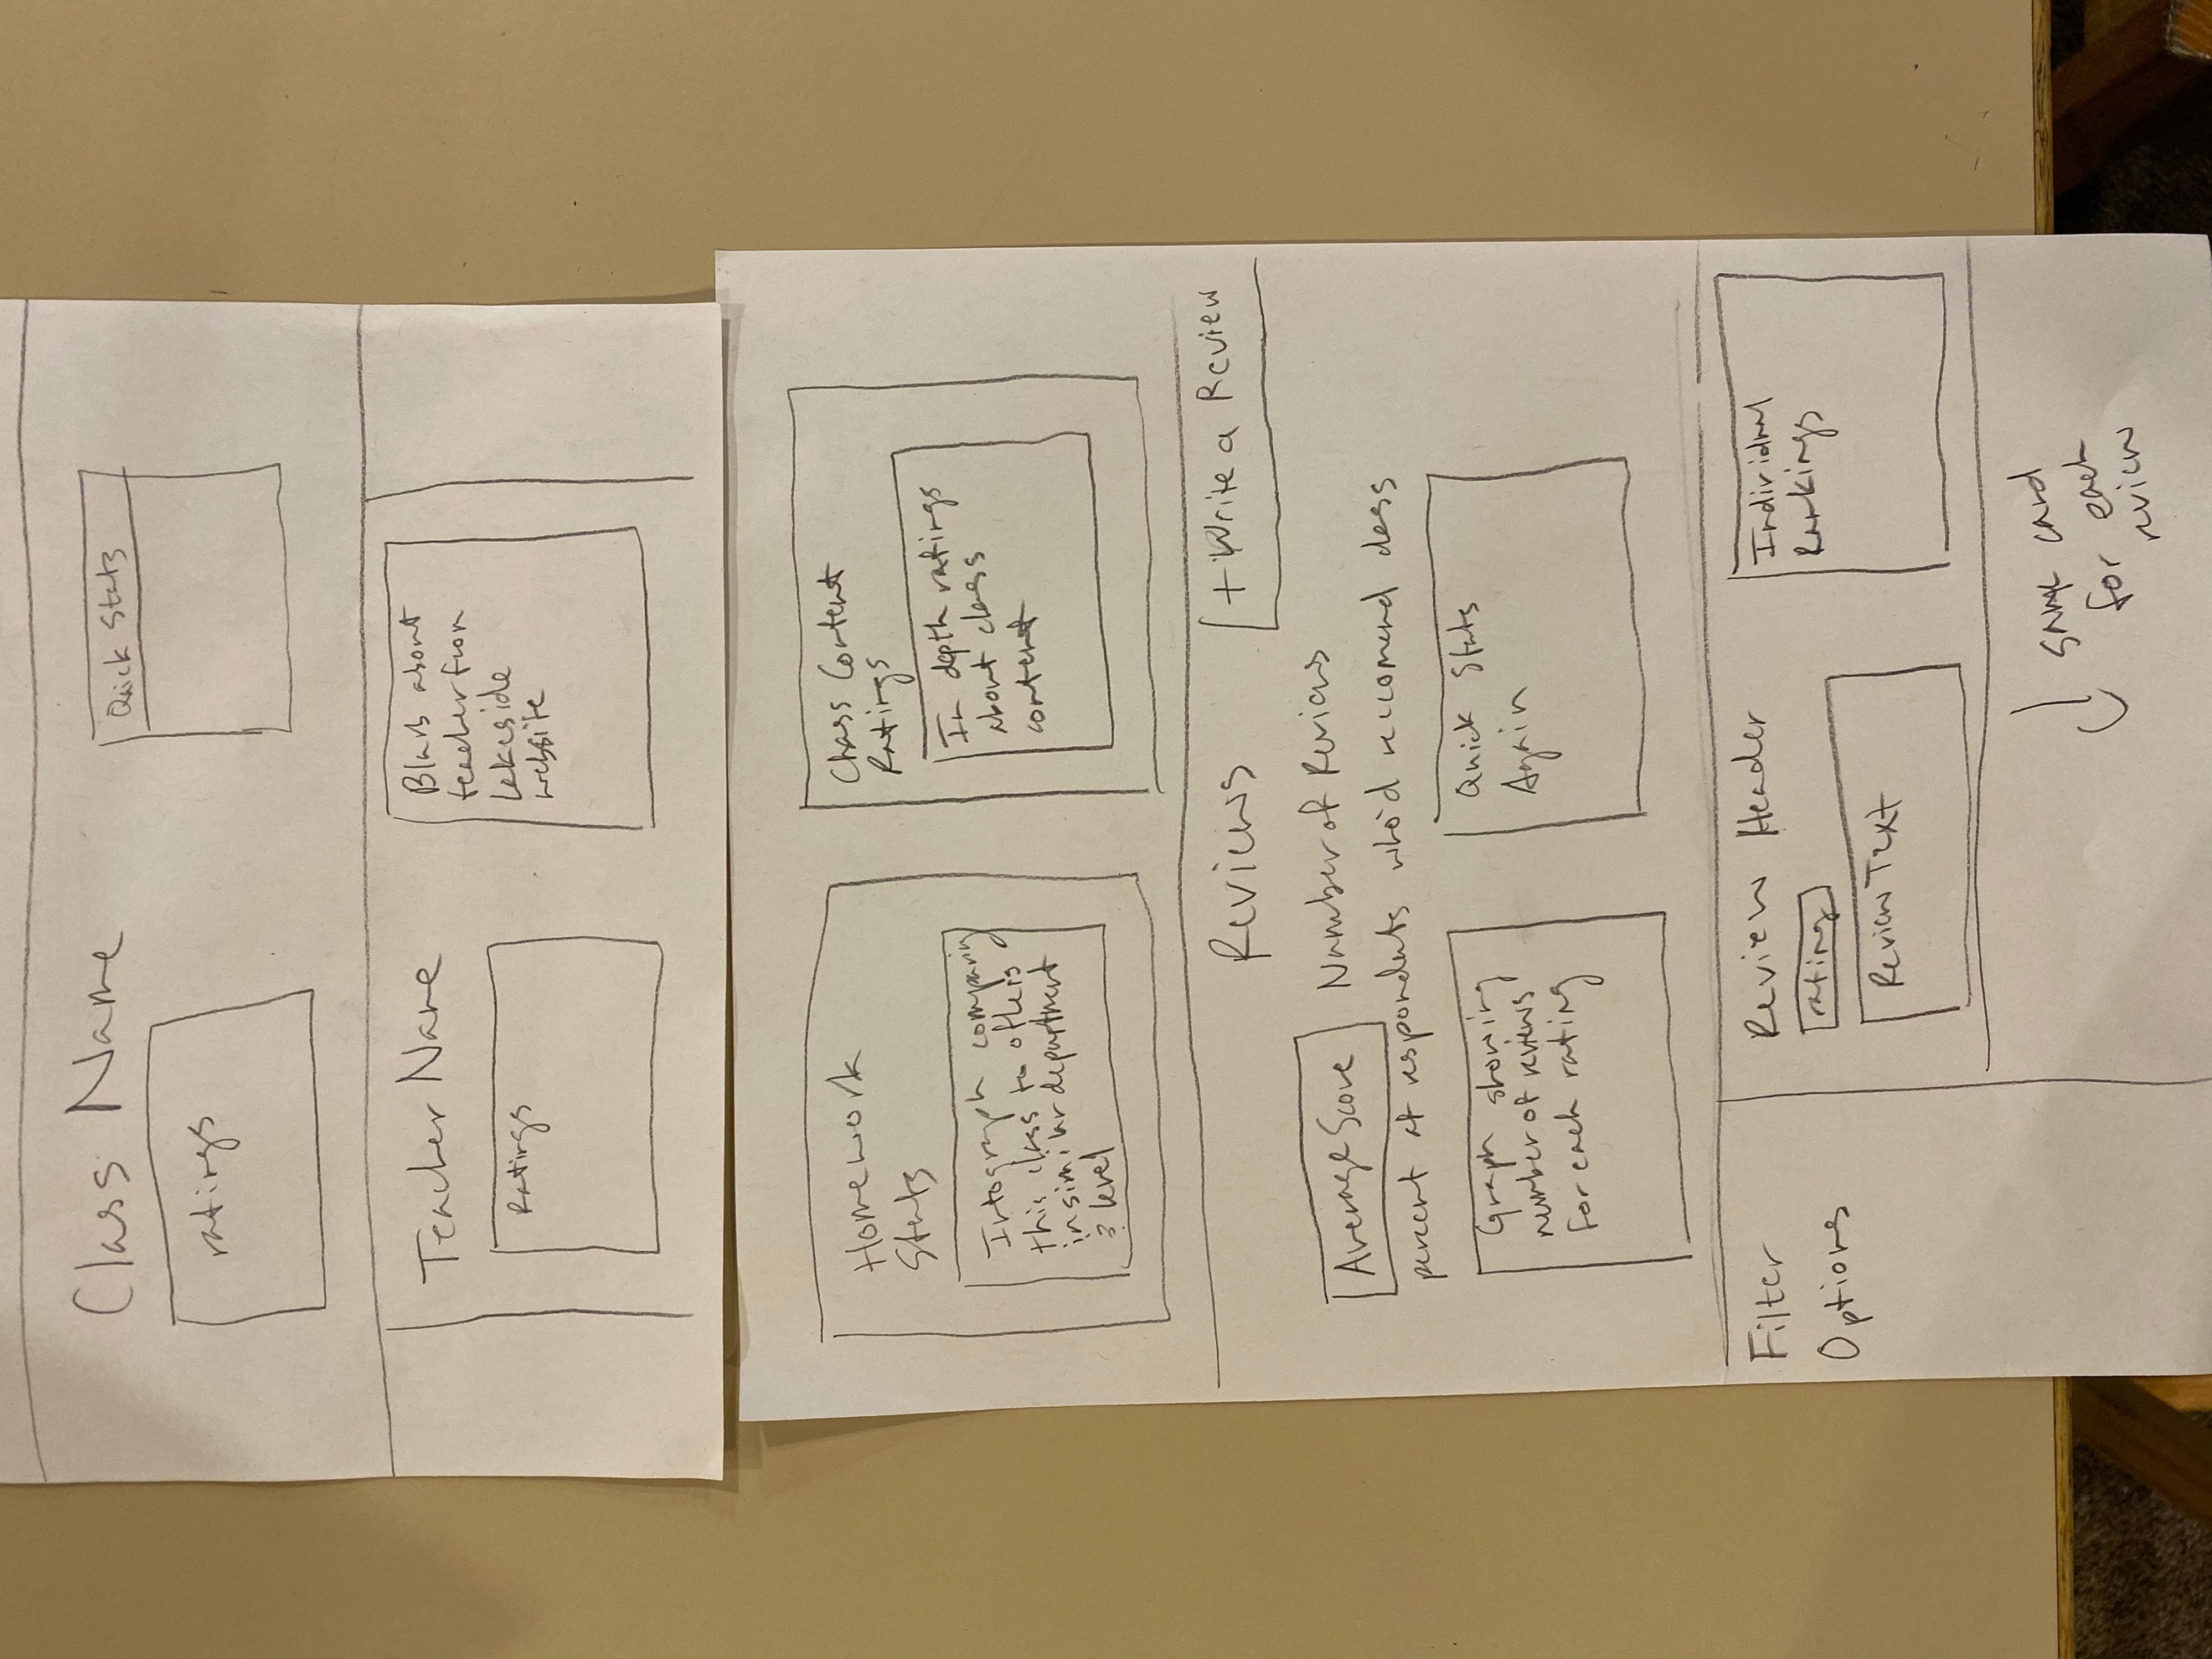 Class Name
Quick Stats
ratings
Teacher Name
Blurb about
teacher from
Lakeside
website
Ratings
Homework
Stats
Histograph comparing
this class to others
in similar department
& level
Class Content
Ratings
In depth ratings
about class
content
Reviews
+ Write a Review
Average Score
Number of Reviews
percent of respondents who'd reccomend class
Graph showing
number of reviews
for each rating
Quick Stats
Again
Filter
Options
Review Header
rating
Review Text
Individual
Rankings
same card
for each
review